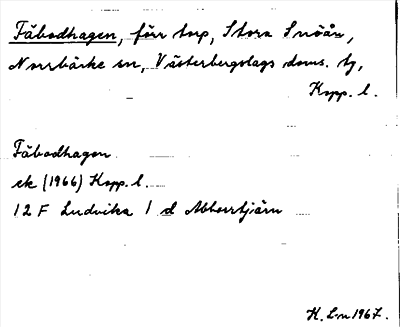 Fäbodhagen, förr torp, Stora Snöån,
Norrbärke sn, Västerbergslags doms. tg,
Kopp. l.
Fäbodhagen
ek (1966) Kopp. l.
12 F Ludvika 1 d Abborrtjärn
H. L-n 1967.